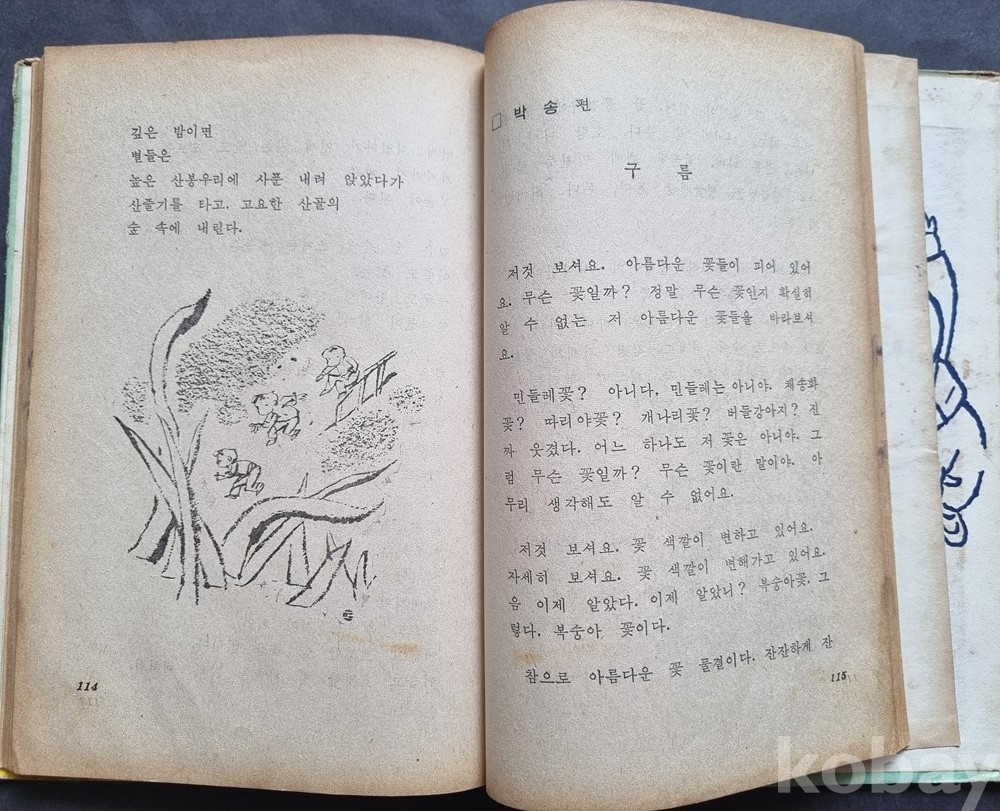 깊은 밤이면
별들은
높은 산봉우리에 사뿐 내려 앉았다가
산줄기를 타고, 고요한 산골의
숲 속에 내린다.
114
□ 박 송 편
구 름
저것 보셔요. 아름다운 꽃들이 피어 있어
요. 무슨 꽃일까? 정말 무슨 꽃인지 확실히
알 수 없는 저 아름다운 꽃들을 바라보셔
요.
민들레꽃? 아니다, 민들레는 아니야. 채송화
꽃? 따리야꽃? 개나리꽃? 버들강아지? 진
짜 웃겼다. 어느 하나도 저 꽃은 아니야. 그
럼 무슨 꽃일까? 무슨 꽃이란 말이야. 아
무리 생각해도 알 수 없어요.
저것 보셔요. 꽃 색깔이 변하고 있어요.
자세히 보셔요. 꽃 색깔이 변해가고 있어요.
음 이제 알았다. 이제 알았니? 복숭아꽃, 그
렇다. 복숭아 꽃이다.
참으로 아름다운 꽃 물결이다. 잔잔하게 잔
115
kobay